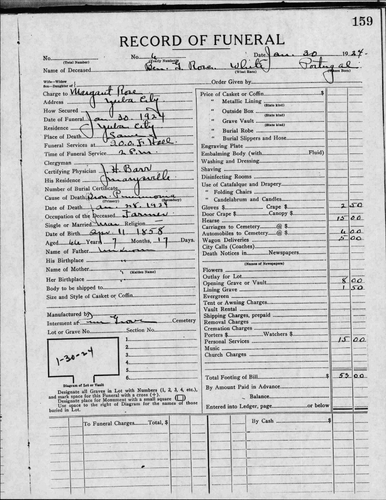 159
RECORD OF FUNERAL
No. 6 Date Jan. 30 1924
(Total Number) (Yearly Number)
Name of Deceased Ben. F. Rose White Portugal
(What Race) (Where Born)
Charge to Margaret Rose
Address Yuba City
How Secured
Date of Funeral Jan 30. 1924
Residence Yuba City
Place of Death
Funeral Services at I.O.O.F. Hall
Time of Funeral Service 2 P.M.
Clergyman
Certifying Physician J H. Barr
His Residence Marysville
Number of Burial Certificate
Cause of Death Pneumonia
Date of Death Jan. 28. 1924
Occupation of the Deceased Farmer
Single or Married Religion
Date of Birth 11 1858
Aged Years 7 Months, 17 Days
Name of Father Unknown
His Birthplace
Name of Mother
(Maiden Name)
Her Birthplace
Body to be shipped to
Size and Style of Casket or Coffin
Manufactured by
Interment at Cemetery
Lot or Grave No. Section No.
1-30-24
1.
2.
3.
4.
5.
6.
Diagram of Lot or Vault
Designate all Graves in Lot with Numbers (1, 2, 3, 4, etc.),
and mark space for this Funeral with a cross (+).
Designate place for Monument with a small square
Use space to the right of Diagram for the names of those
buried in Lot.
To Funeral Charges Total, $
Order Given by
Price of Casket or Coffin $
" Metallic Lining
(State Kind)
" Outside Box
(State Kind)
" Grave Vault
(State Kind)
" Burial Robe
(State Kind)
" Burial Slippers and Hose
Engraving Plate
Embalming Body (with Fluid)
Washing and Dressing
Shaving
Disinfecting Rooms
Use of Catafalque and Drapery
" Folding Chairs
" Candelabrum and Candles
Gloves $ Crape $ 2 50
Door Crape $ Canopy $
Hearse 15 00
Carriages to Cemetery @ $
Automobiles to Cemetery @ $ 6 00
Wagon Deliveries 5 00
City Calls (Coaches)
Death Notices in Newspapers
(Names of Newspapers)
Flowers
Outlay for Lot
Opening Grave or Vault 8 00
Lining Grave 1 50
Evergreen
Tent or Awning Charges
Vault Rental
Shipping Charges, prepaid
Removal Charges
Cremation Charges
Porters $ Watchers $
Personal Services 15 00
Music
Church Charges
Total Footing of Bill $ 53 00
By Amount Paid in Advance
Balance
Entered into Ledger, page or below
By Cash $